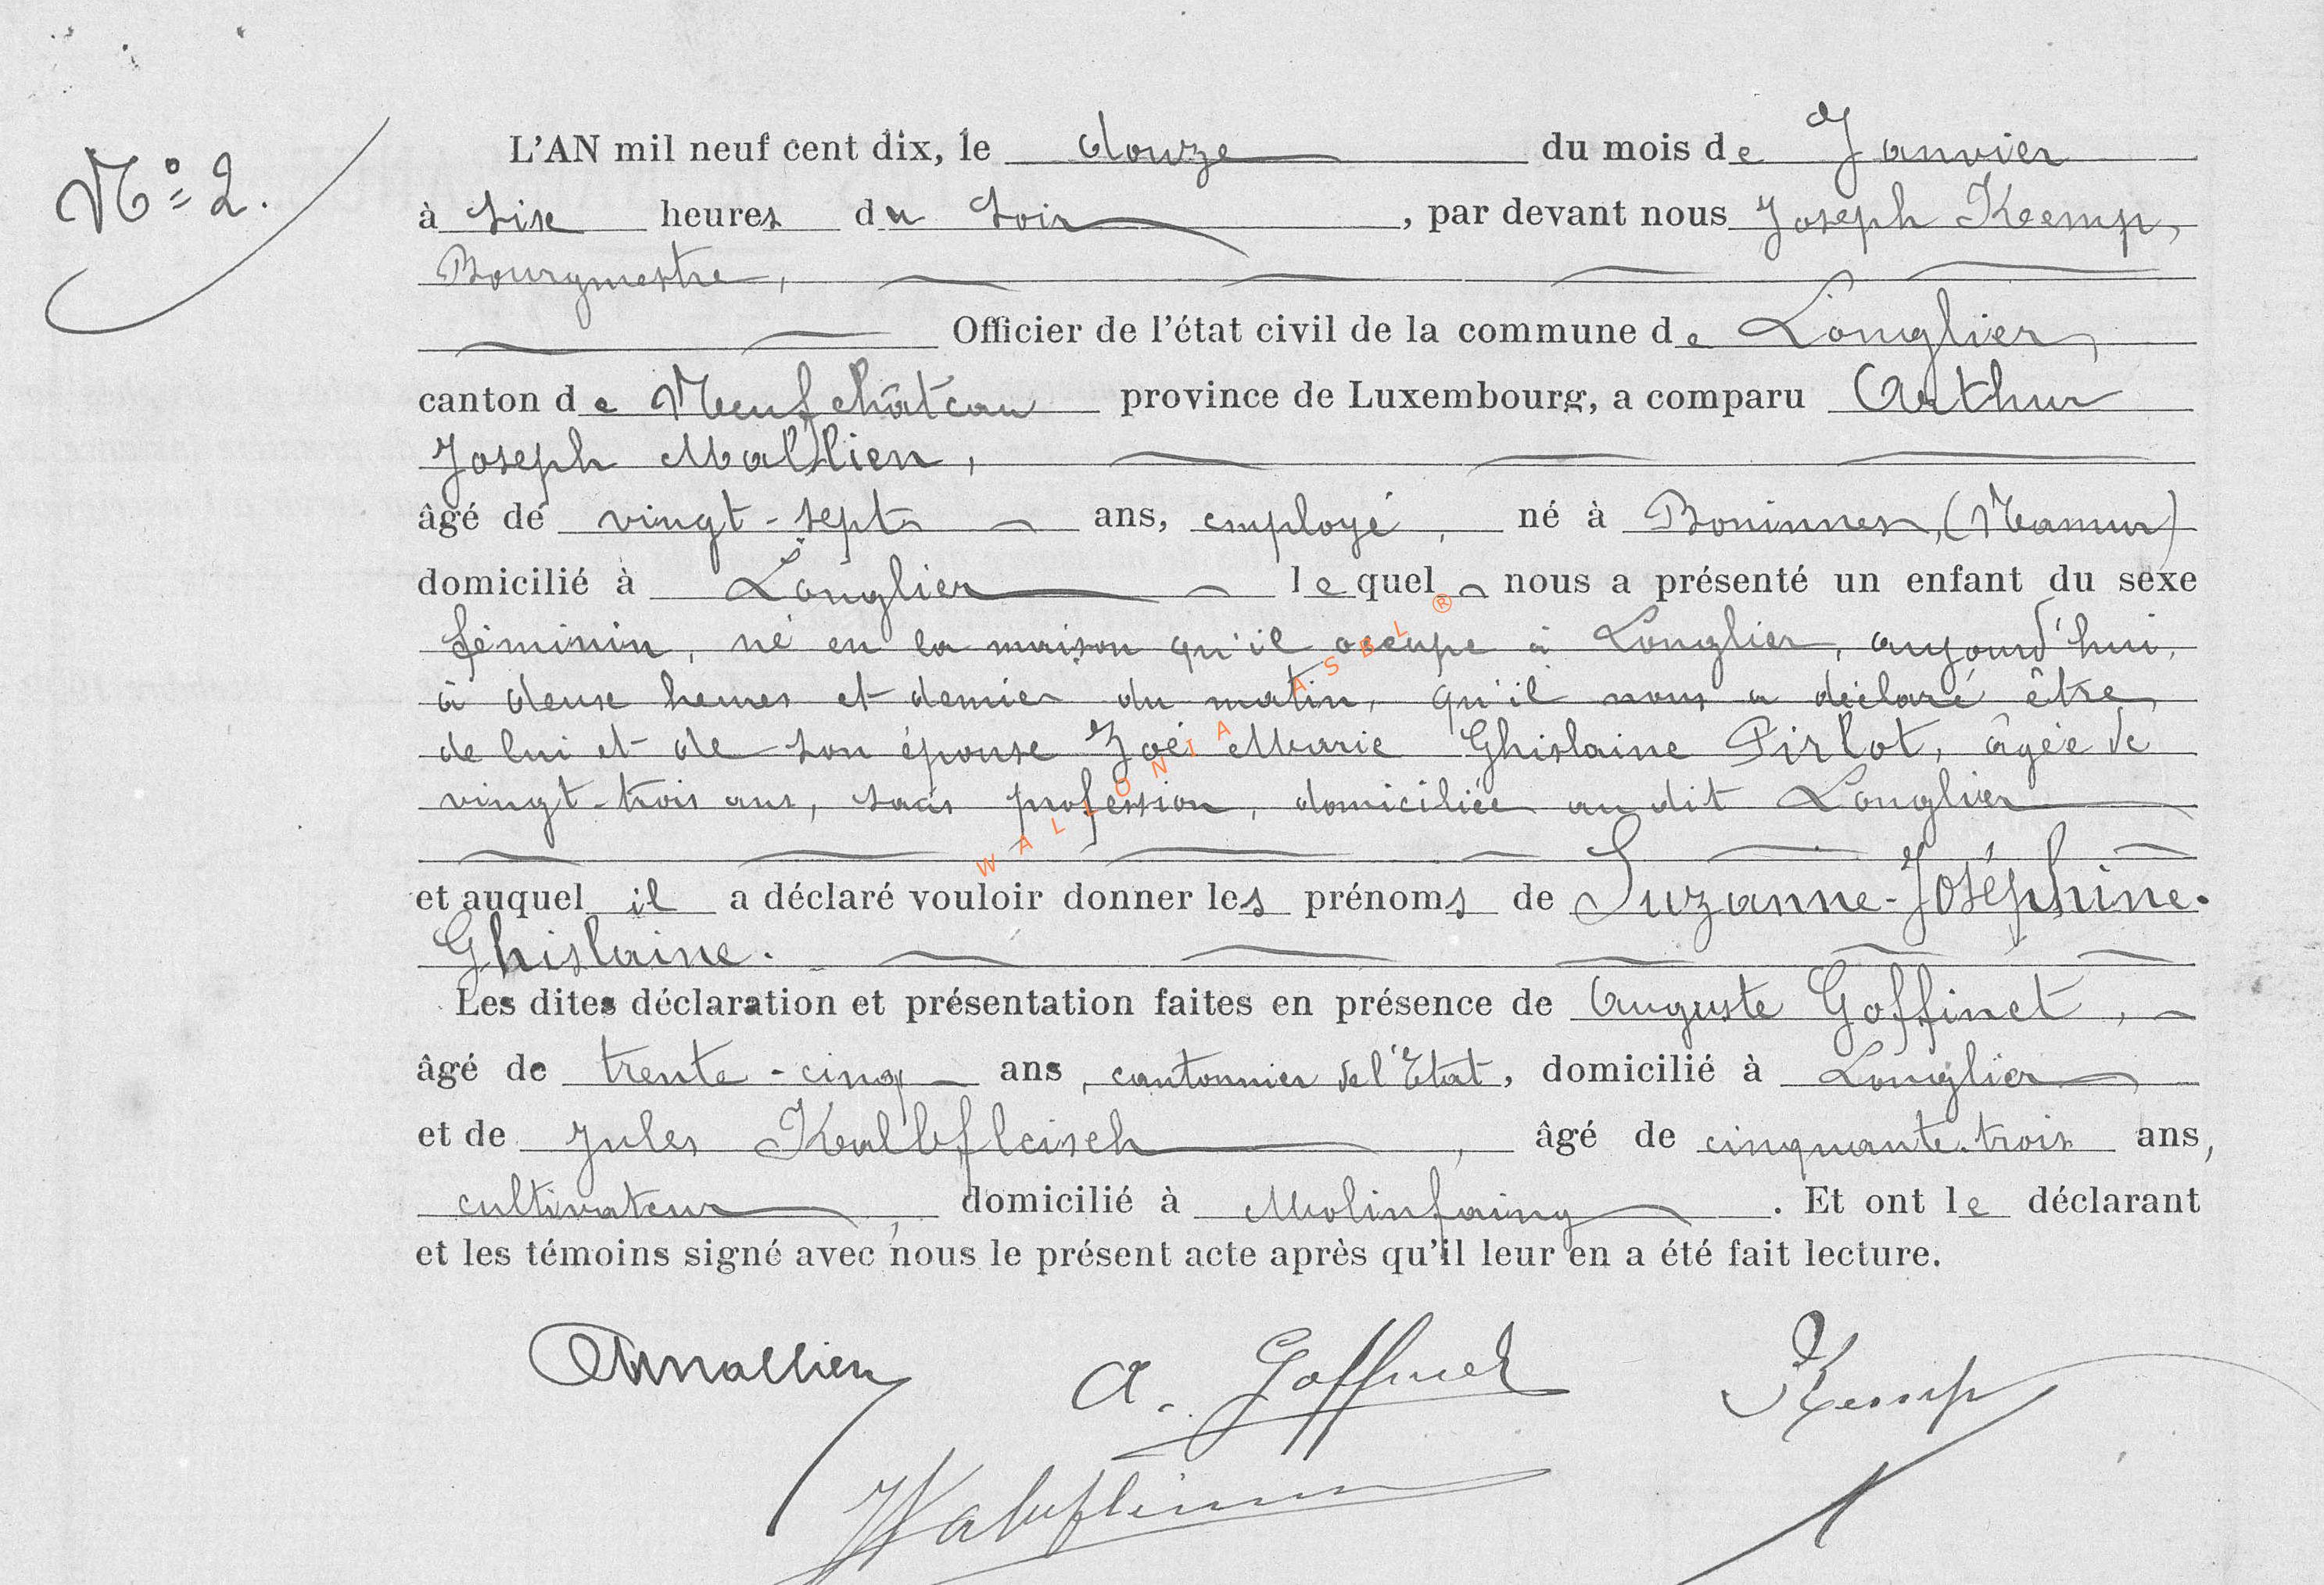 N° 2.
L'AN mil neuf cent dix, le douze du mois de Janvier
à six heures du soir, par devant nous Joseph Kemp,
Bourgmestre,
Officier de l'état civil de la commune de Longlier,
canton de Neufchâteau province de Luxembourg, a comparu Arthur
Joseph Mallien,
âgé de vingt-sept ans, employé, né à Boninnes, (Namur)
domicilié à Longlier lequel nous a présenté un enfant du sexe
féminin, né en la maison qu'il occupe à Longlier, aujourd'hui,
à deux heures et demie du matin, qu'il nous a déclaré être
de lui et de son épouse Zoé Marie Ghislaine Pirlot, âgée de
vingt-trois ans, sans profession, domiciliée au dit Longlier
WALLONIA ASBL ®
et auquel il a déclaré vouloir donner les prénoms de Suzanne-Joséphine-
Ghislaine.
Les dites déclaration et présentation faites en présence de Auguste Goffinet,
âgé de trente-cinq ans, cantonnier de l'Etat, domicilié à Longlier
et de Jules Kalbfleisch, âgé de cinquante-trois ans,
cultivateur, domicilié à Molinfaing. Et ont le déclarant
et les témoins signé avec nous le présent acte après qu'il leur en a été fait lecture.
AMallien A. Goffinet Kemp